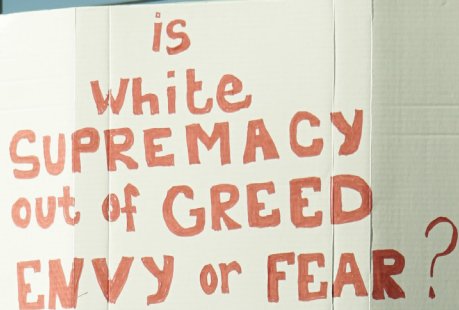 is
white
SUPREMACY
out of GREED
ENVY or FEAR?